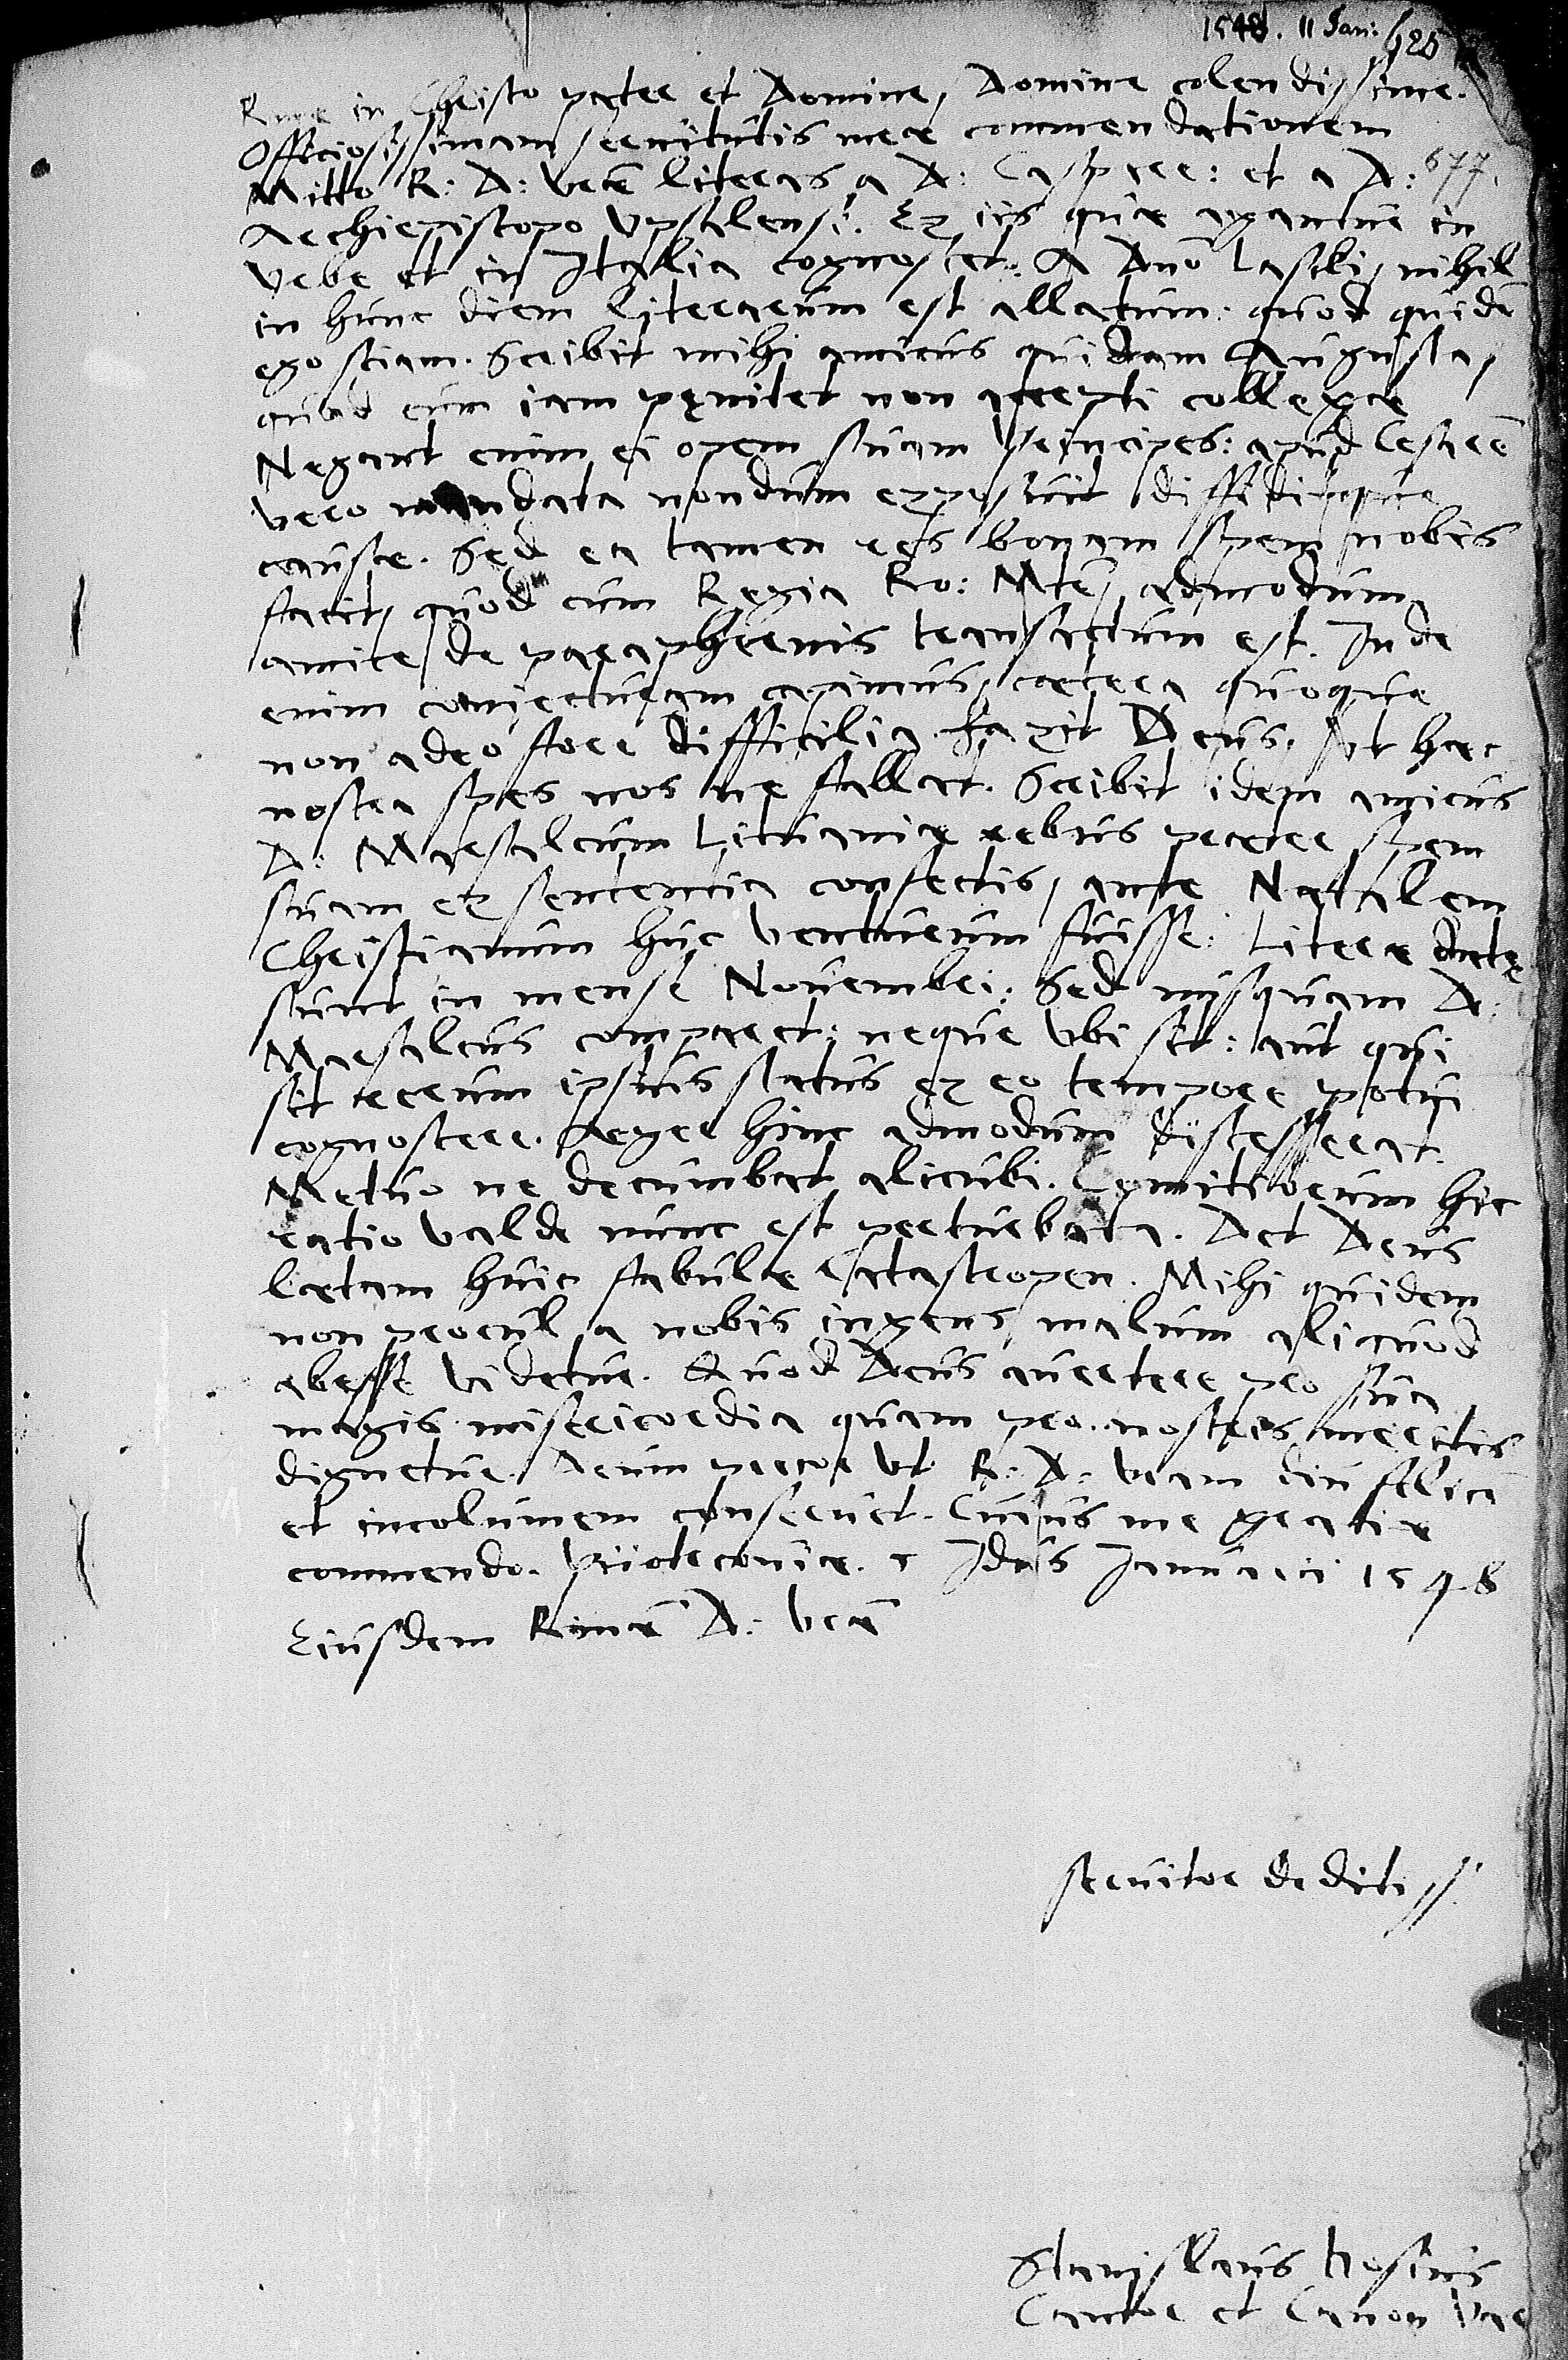 1548. 11 Jan: 125
Rme in Christo pater et Domine, Domine colendissime.
Officiosissimam servitutis mee commendationem
Mitto R: D: vre literas a D: Caspare: et a D: 677.
Archiepiscopo Upsalensi. Ex iis quae agantur in
Urbe et in Italia cognoscet. A Dno Lascki, nihil
in hunc diem literarum est allatum: quod quidem
ego sciam. Scribit mihi amicus quidam Augusta,
quod eum iam penitet non accepti collegae
Negant enim ei opem suam Principes: apud Cesarem
vero mandata nondum exposuit diffiditque
causae. Sed ea tamen res bonam spem nobis
facit, quod cum Regia Ro: Mte, admodum
amice de parapherniis transactum est. Inde
enim coniecturam capimus, caetera quoque
non adeo fore difficilia. Faxit Deus, ut haec
nostra spes nos ne fallat. Scribit idem amicus
D: Marsalcum Lituaniae rebus preter spem
suam ex sententia confectis, ante Natalem
Christianum huc venturum fuisse: Literae datę
sunt in mense Novembri: Sed nusquam D:
Marsalcus comparet: neque ubi sit: aut qui
sit rerum ipsius status ex eo tempore potui
cognoscere. Aeger hinc admodum discesserat.
Metuo ne decumbat alicubi. Comitiorum hic
ratio valde nunc est perturbata. Det Deus
laetam huic fabulae Catastropen. Mihi quidem
non procul a nobis ingens malum aliquod
abesse videtur. Quod Deus avertere pro sua
magis misericordia quam pro nostris meritis
dignetur. Deum precor ut R: D: vram diu felicem
et incolumem conservet. Cuius me gratiae
commendo. Piiotrcoviae. Idus Januarii 1548
Eiusdem Rimae D: vrae
servitor deditiss
Stanislaus Hosius
Cantor et Canon Var